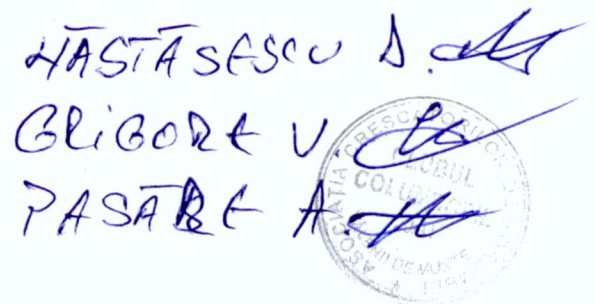 NĂSTĂSESCU D.
GRIGORE V.
PASĂRE A.
ASOCIAȚIA CRESCĂTORILOR
CLUBUL
COLUMBOFIL
DE MUNTE